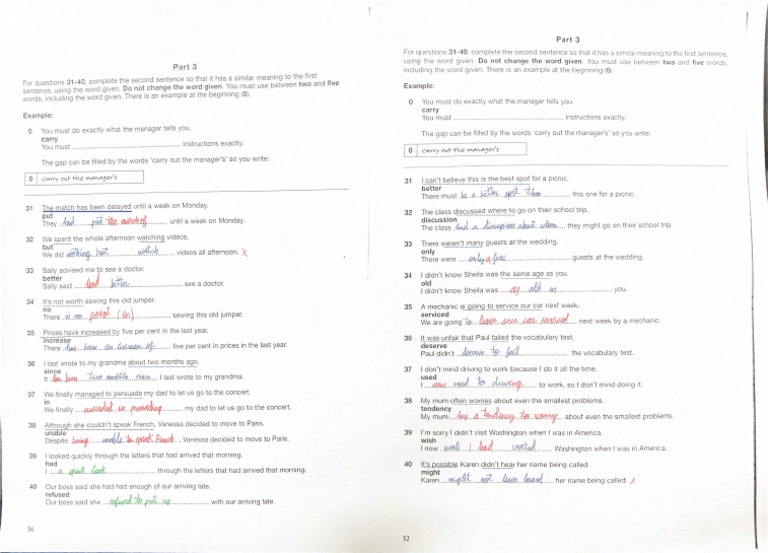 Part 3
For questions 31-40, complete the second sentence so that it has a similar meaning to the first
sentence, using the word given. Do not change the word given. You must use between two and five
words, including the word given. There is an example at the beginning (0).
Example:
0 You must do exactly what the manager tells you.
carry
You must .............................. instructions exactly.
The gap can be filled by the words 'carry out the manager's' so you write:
0 carry out the manager's
31 The match has been delayed until a week on Monday.
put
They had put the match off until a week on Monday.
32 We spent the whole afternoon watching videos.
but
We did nothing but watch videos all afternoon. x
33 Sally advised me to see a doctor.
better
Sally said had better see a doctor.
34 It's not worth sewing this old jumper.
no
There is no point (in) sewing this old jumper.
35 Prices have increased by five per cent in the last year.
increase
There has been an increase of five per cent in prices in the last year.
36 I last wrote to my grandma about two months ago.
since
It has been two months since I last wrote to my grandma.
37 We finally managed to persuade my dad to let us go to the concert.
in
We finally succeeded in persuading my dad to let us go to the concert.
38 Although she couldn't speak French, Vanessa decided to move to Paris.
unable
Despite being unable to speak French, Vanessa decided to move to Paris.
39 I looked quickly through the letters that had arrived that morning.
had
I a quick look through the letters that had arrived that morning.
40 Our boss said she had had enough of our arriving late.
refused
Our boss said she refused to put up with our arriving late.
56
Part 3
For questions 31-40, complete the second sentence so that it has a similar meaning to the first sentence,
using the word given. Do not change the word given. You must use between two and five words,
including the word given. There is an example at the beginning (0).
Example:
0 You must do exactly what the manager tells you.
carry
You must .............................. instructions exactly.
The gap can be filled by the words 'carry out the manager's' so you write:
0 carry out the manager's
31 I can't believe this is the best spot for a picnic.
better
There must be a better spot than this one for a picnic.
32 The class discussed where to go on their school trip.
discussion
The class had a discussion about where they might go on their school trip.
33 There weren't many guests at the wedding.
only
There were only a few guests at the wedding.
34 I didn't know Sheila was the same age as you.
old
I didn't know Sheila was as old as you.
35 A mechanic is going to service our car next week.
serviced
We are going to have our car serviced next week by a mechanic.
36 It was unfair that Paul failed the vocabulary test.
deserve
Paul didn't deserve to fail the vocabulary test.
37 I don't mind driving to work because I do it all the time.
used
I used to driving to work, so I don't mind doing it.
38 My mum often worries about even the smallest problems.
tendency
My mum has a tendency to worry about even the smallest problems.
39 I'm sorry I didn't visit Washington when I was in America.
wish
I now wish I had visited Washington when I was in America.
40 It's possible Karen didn't hear her name being called.
might
Karen might not have heard her name being called.
52